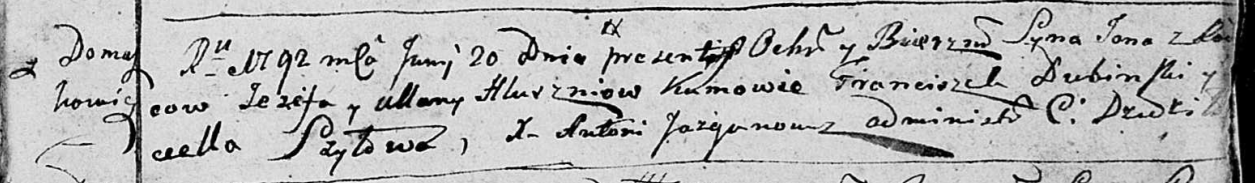 Domaƒ Ru 1792 mca Junij 20 Dnia presentis Ochr y Bierzm Syna Jana z
howic cow Jozefa y Ullany Hluszniow Kumowie Franciszek Dubinski y
cella Szyłowa, X. Antoni Jazganowicz administr C: